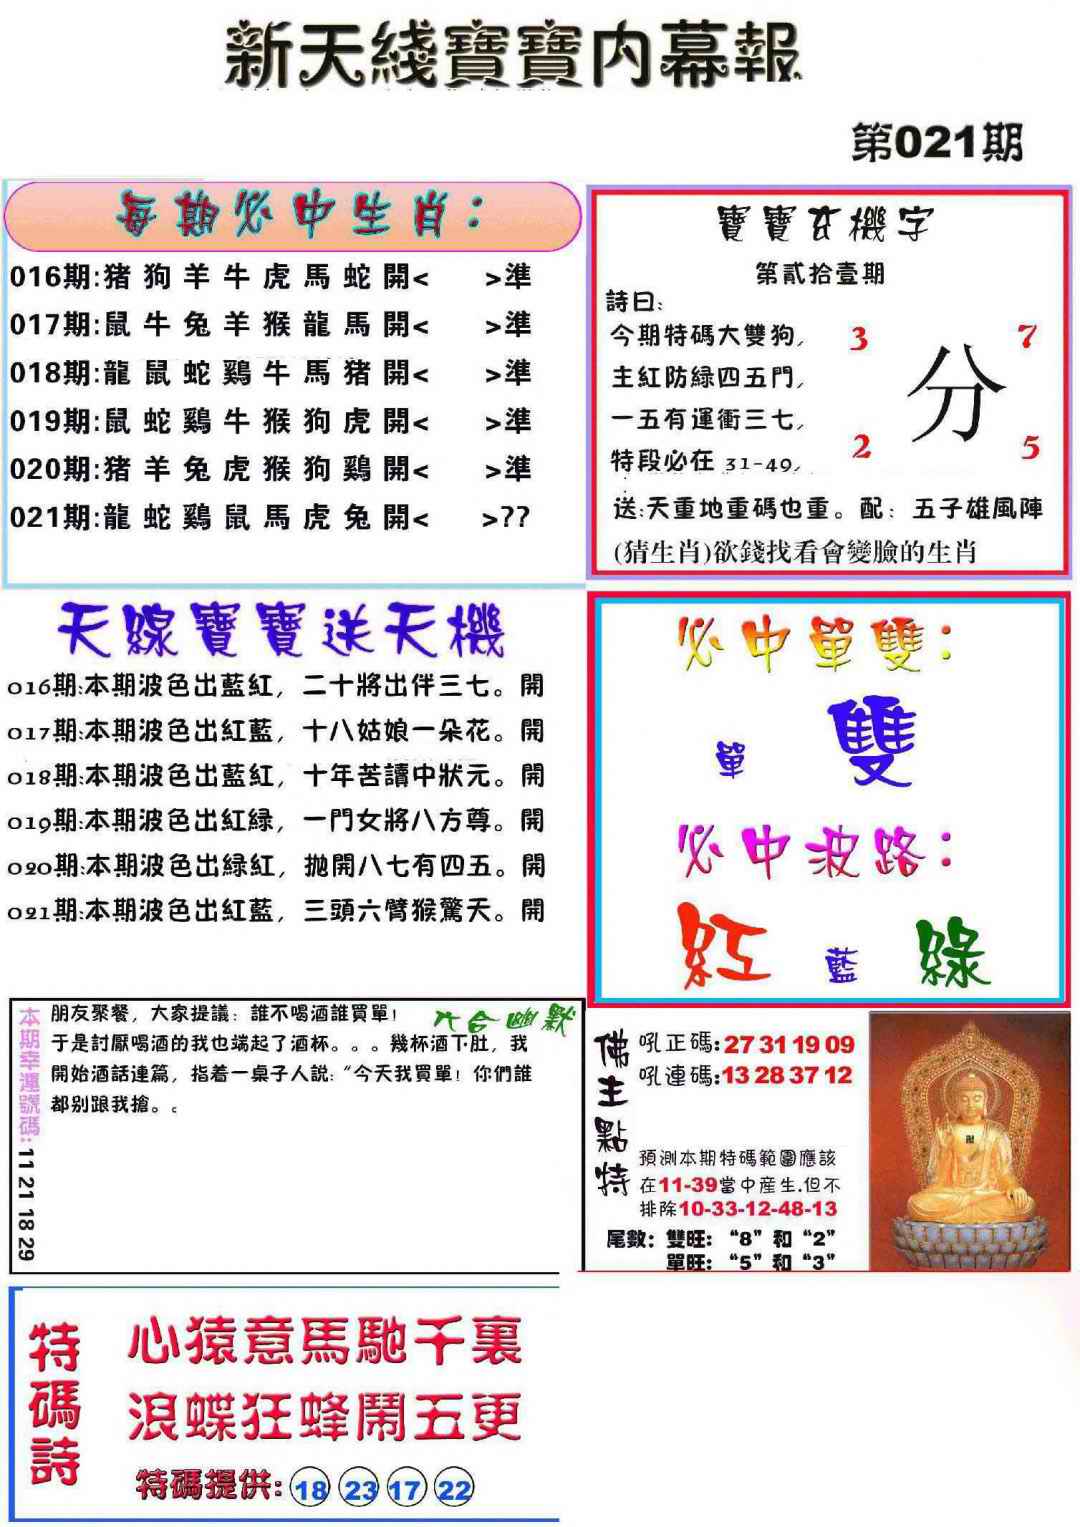 新天綫寶寶内幕報
第021期
每期必中生肖：
016期:猪狗羊牛虎馬蛇開< >準
017期:鼠牛兔羊猴龍馬開< >準
018期:龍鼠蛇鷄牛馬猪開< >準
019期:鼠蛇鷄牛猴狗虎開< >準
020期:猪羊兔虎猴狗鷄開< >準
021期:龍蛇鷄鼠馬虎兔開< >??
寶寶玄機字
第貳拾壹期
詩曰:
今期特碼大雙狗,
主紅防緑四五門,
一五有運衝三七,
特段必在 31-49,
3 7
分
2 5
送:天重地重碼也重。配：五子雄風陣
(猜生肖)欲錢找看會變臉的生肖
天線寶寶送天機
016期:本期波色出藍紅，二十將出伴三七。開
017期:本期波色出紅藍，十八姑娘一朵花。開
018期:本期波色出藍紅，十年苦讀中狀元。開
019期:本期波色出紅緑，一門女將八方尊。開
020期:本期波色出緑紅，拋開八七有四五。開
021期:本期波色出紅藍，三頭六臂猴驚天。開
必中單雙：
單 雙
必中波路：
紅 藍 緑
本期幸運號碼: 11 21 18 29
六合幽默
朋友聚餐，大家提議：誰不喝酒誰買單！
于是討厭喝酒的我也端起了酒杯。。。幾杯酒下肚，我
開始酒話連篇，指着一桌子人説:“今天我買單！你們誰
都别跟我搶。。
佛主點特
吼正碼:27 31 19 09
吼連碼:13 28 37 12
預測本期特碼範圍應該
在11-39當中産生.但不
排除10-33-12-48-13
尾數：雙旺：“8”和“2”
單旺：“5”和“3”
特碼詩
心猿意馬馳千裏
浪蝶狂蜂鬧五更
特碼提供: 18 23 17 22